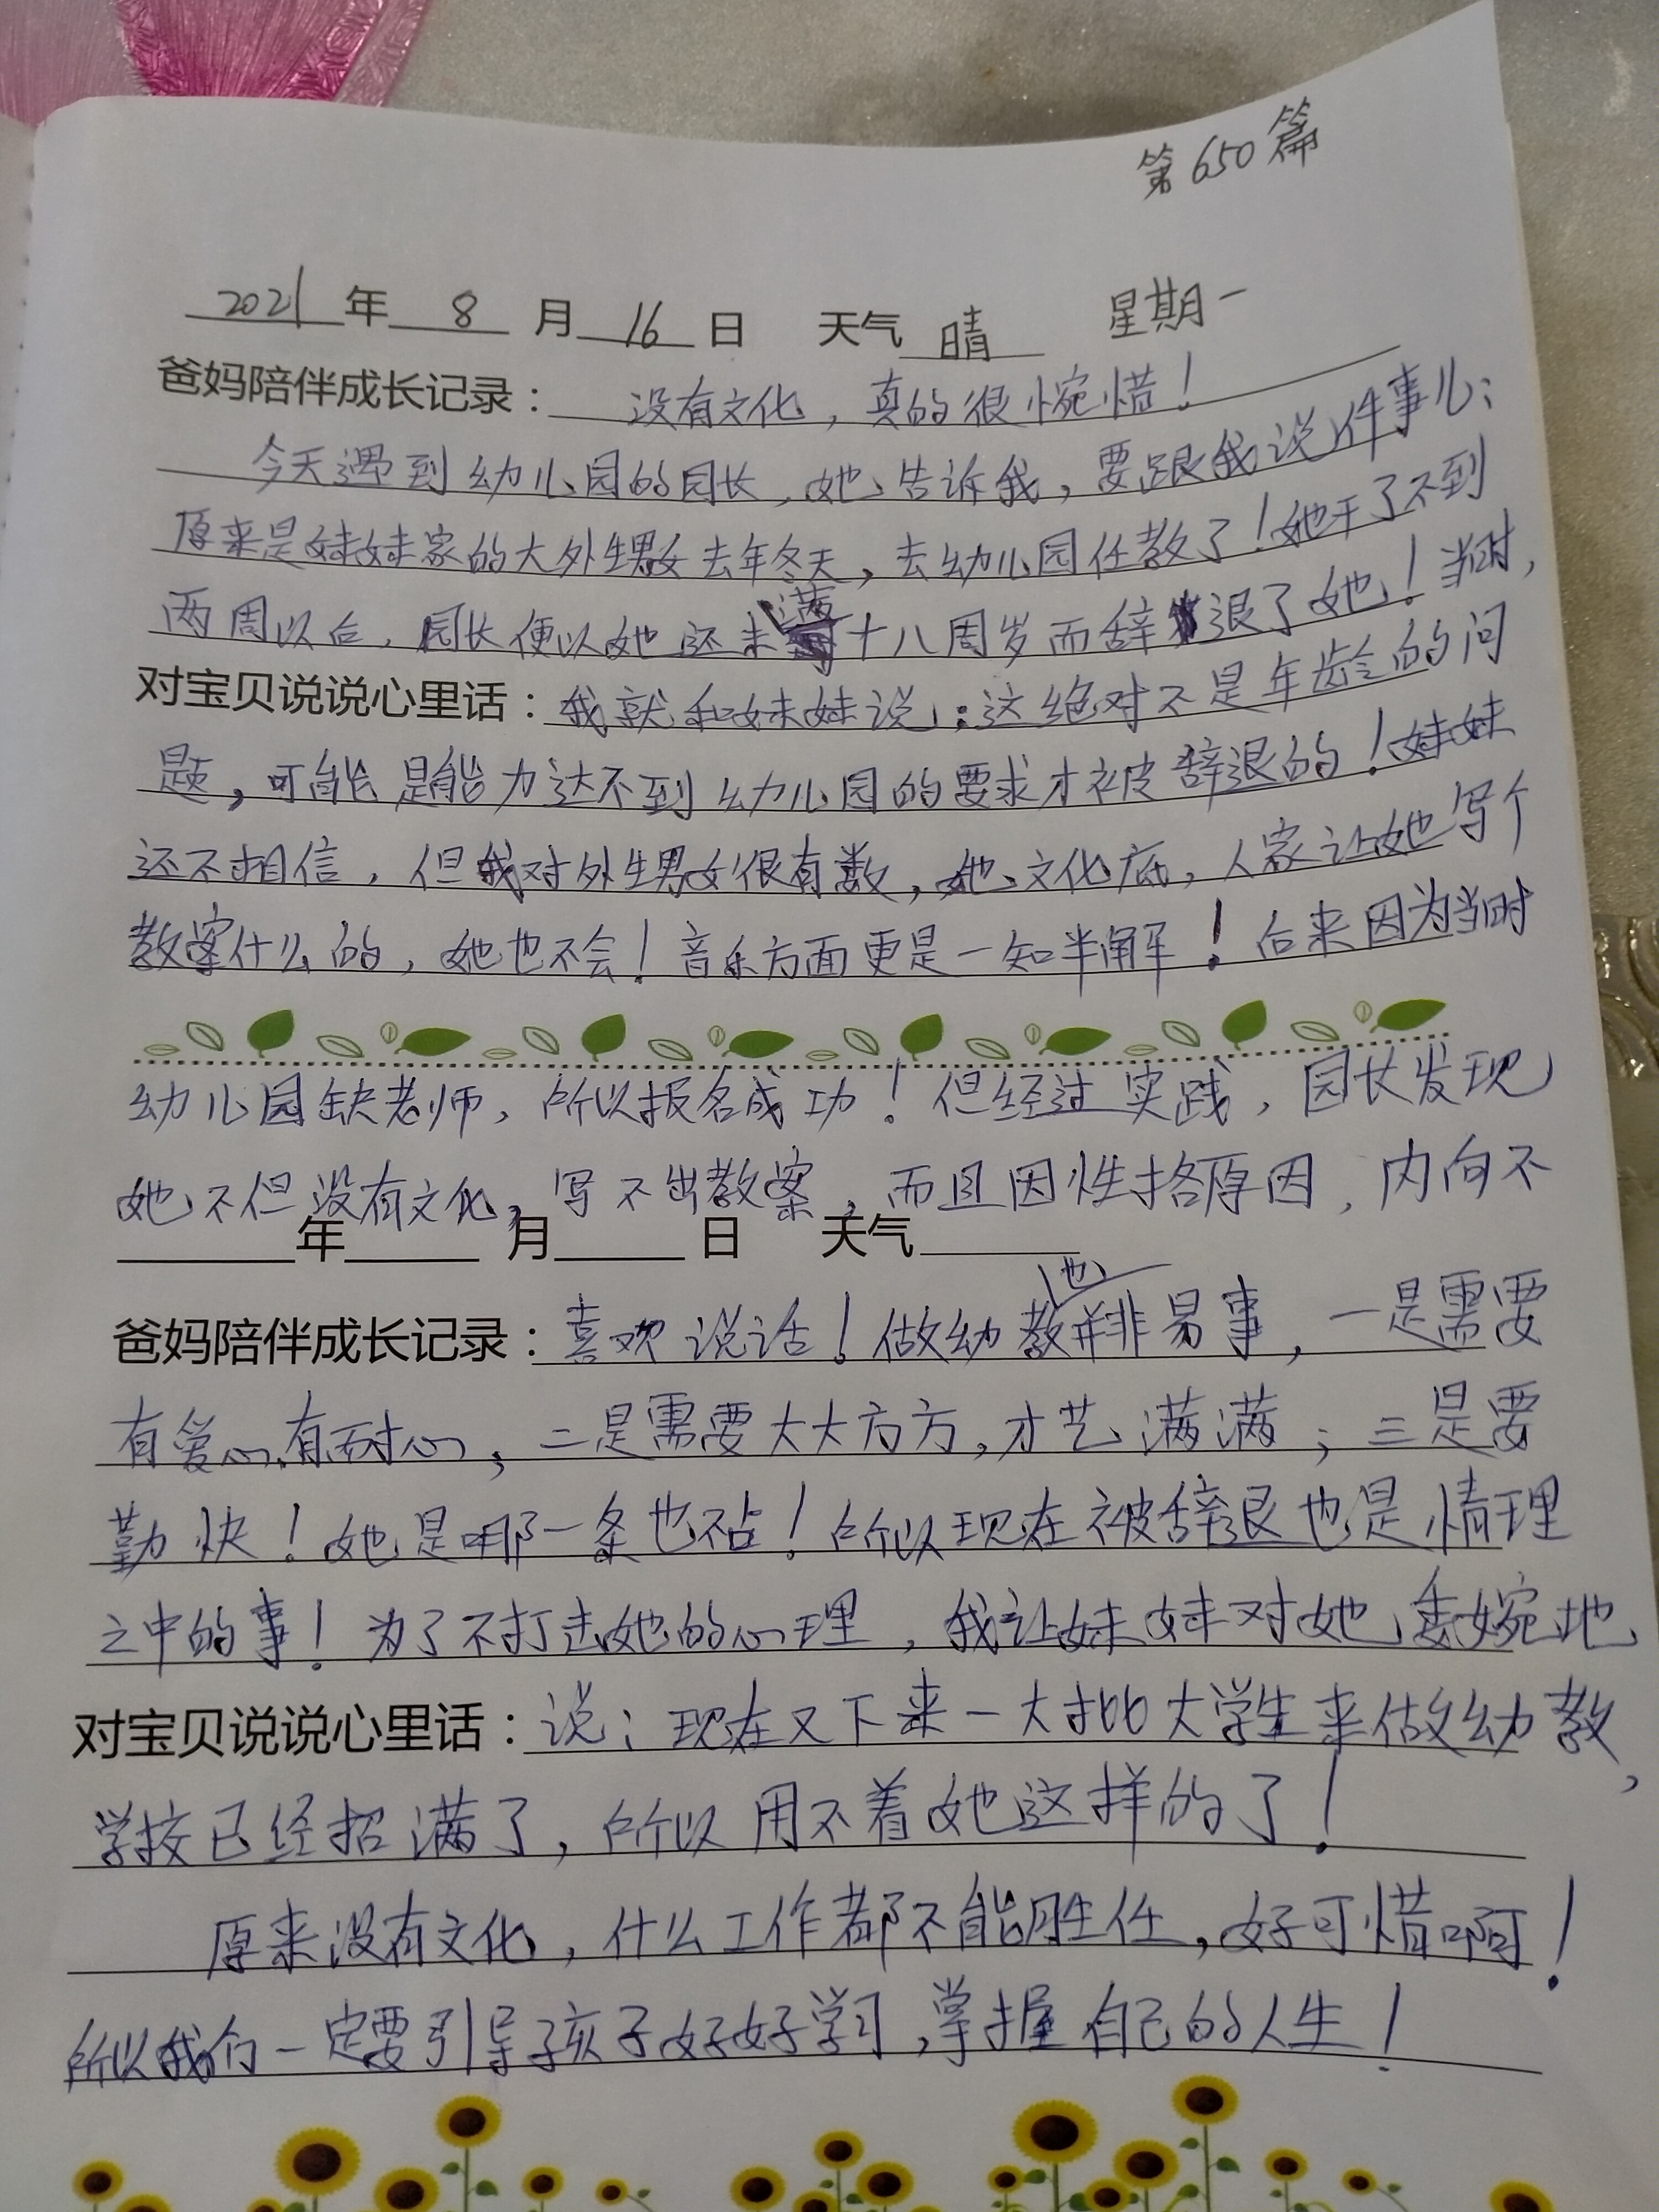 第650篇
2021年 8 月 16 日 天气 晴 星期一
爸妈陪伴成长记录：没有文化，真的很惋惜！
今天遇到幼儿园的园长，她告诉我，要跟我说件事儿：
原来是妹妹家的大外甥女去年冬天，去幼儿园任教了！她干了不到
两周以后，园长便以她还未满十八周岁而辞退了她！当时，
对宝贝说说心里话：我就和妹妹说：这绝对不是年龄的问
题，可能是能力达不到幼儿园的要求才被辞退的！妹妹
还不相信，但我对外甥女很有数，她文化底，人家让她写个
教案什么的，她也不会！音乐方面更是一知半解！后来因为当时
幼儿园缺老师，所以报名成功！但经过实践，园长发现
她不但没有文化，写不出教案，而且因性格原因，内向不
年 月 日 天气
爸妈陪伴成长记录：喜欢说话！做幼教也并非易事，一是需要
有爱心、有耐心，二是需要大大方方，才艺满满；三是要
勤快！她是哪一条也不占！所以现在被辞退也是情理
之中的事！为了不打击她的心理，我让妹妹对她委婉地
对宝贝说说心里话：说：现在又下来一大批大学生来做幼教，
学校已经招满了，所以用不着她这样的了！
原来没有文化，什么工作都不能胜任，好可惜啊！
所以我们一定要引导孩子好好学习，掌握自己的人生！